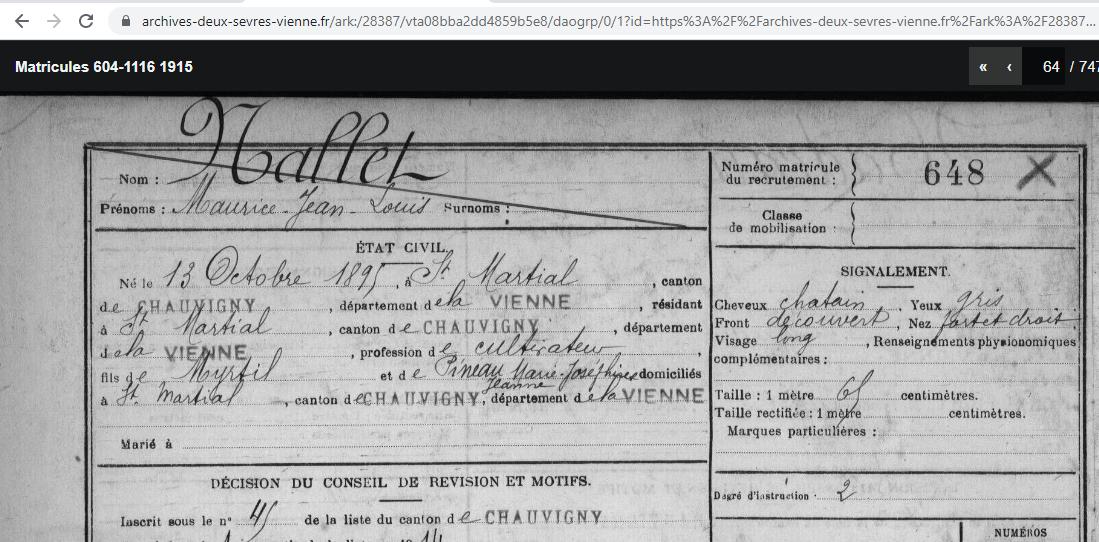 archives-deux-sevres-vienne.fr/ark:/28387/vta08bba2dd4859b5e8/daogrp/0/1?id=https%3A%2F%2Farchives-deux-sevres-vienne.fr%2Fark%3A%2F28387...
Matricules 604-1116 1915
« ‹ 64 / 747
Nallet
Nom :
Prénoms : Maurice-Jean-Louis Surnoms :
ÉTAT CIVIL.
Né le 13 Octobre 1895, à St Martial, canton
de CHAUVIGNY, département de la VIENNE, résidant
à St Martial, canton de CHAUVIGNY, département
de la VIENNE, profession de cultivateur,
fils de Myrtil et de Pineau Marie-Joséphine Jeanne domiciliés
à St Martial, canton de CHAUVIGNY, département de la VIENNE
Marié à
DÉCISION DU CONSEIL DE REVISION ET MOTIFS.
Inscrit sous le n° 45 de la liste du canton de CHAUVIGNY
Numéro matricule du recrutement : 648 X
Classe de mobilisation :
SIGNALEMENT.
Cheveux chatain, Yeux gris
Front découvert, Nez fort et droit
Visage long, Renseignements physionomiques
complémentaires :
Taille : 1 mètre 65 centimètres.
Taille rectifiée : 1 mètre centimètres.
Marques particulières :
Degré d'instruction 2
NUMÉROS